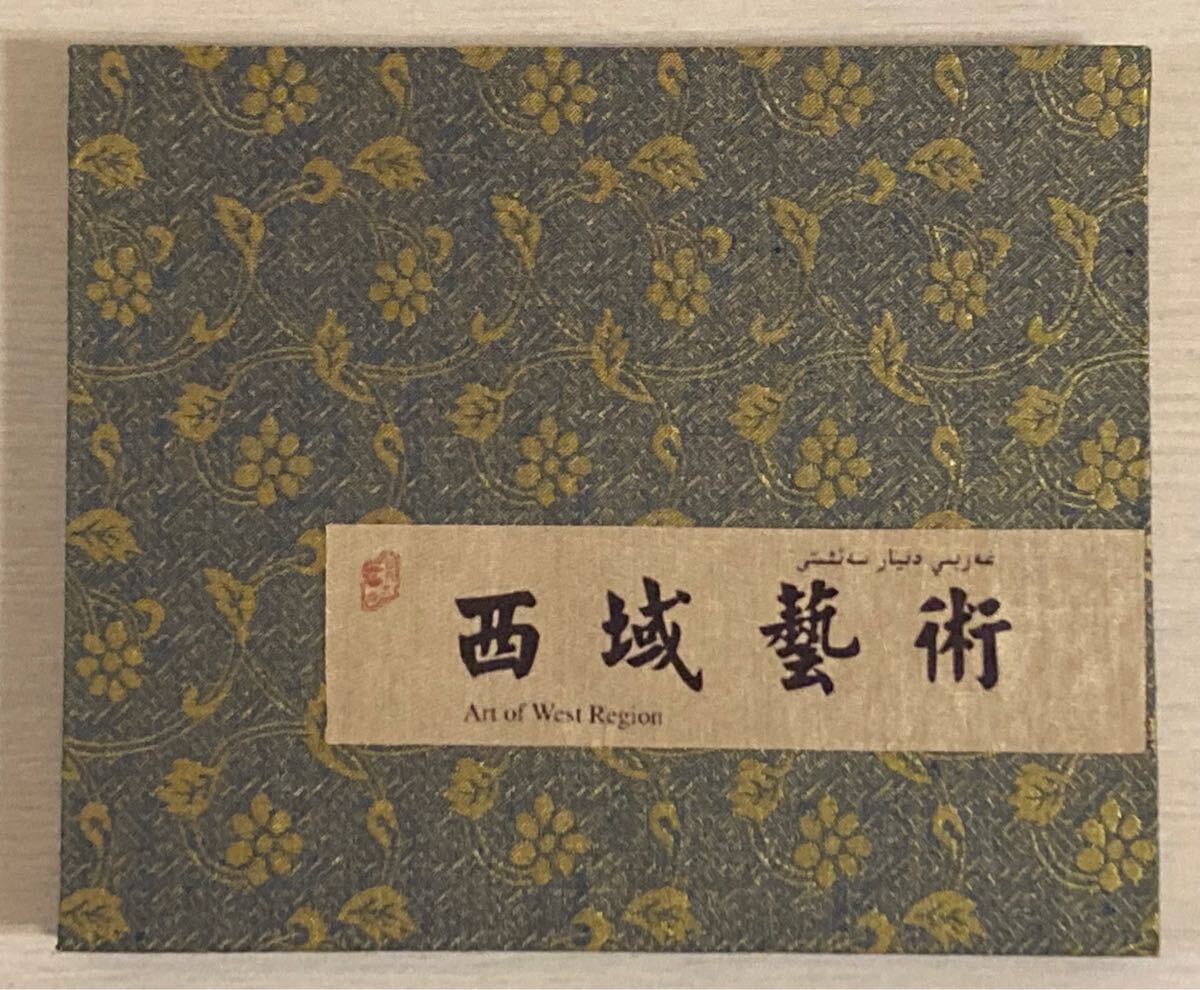 غەربىي دىيار سەنئىتى
西域藝術
Art of West Region